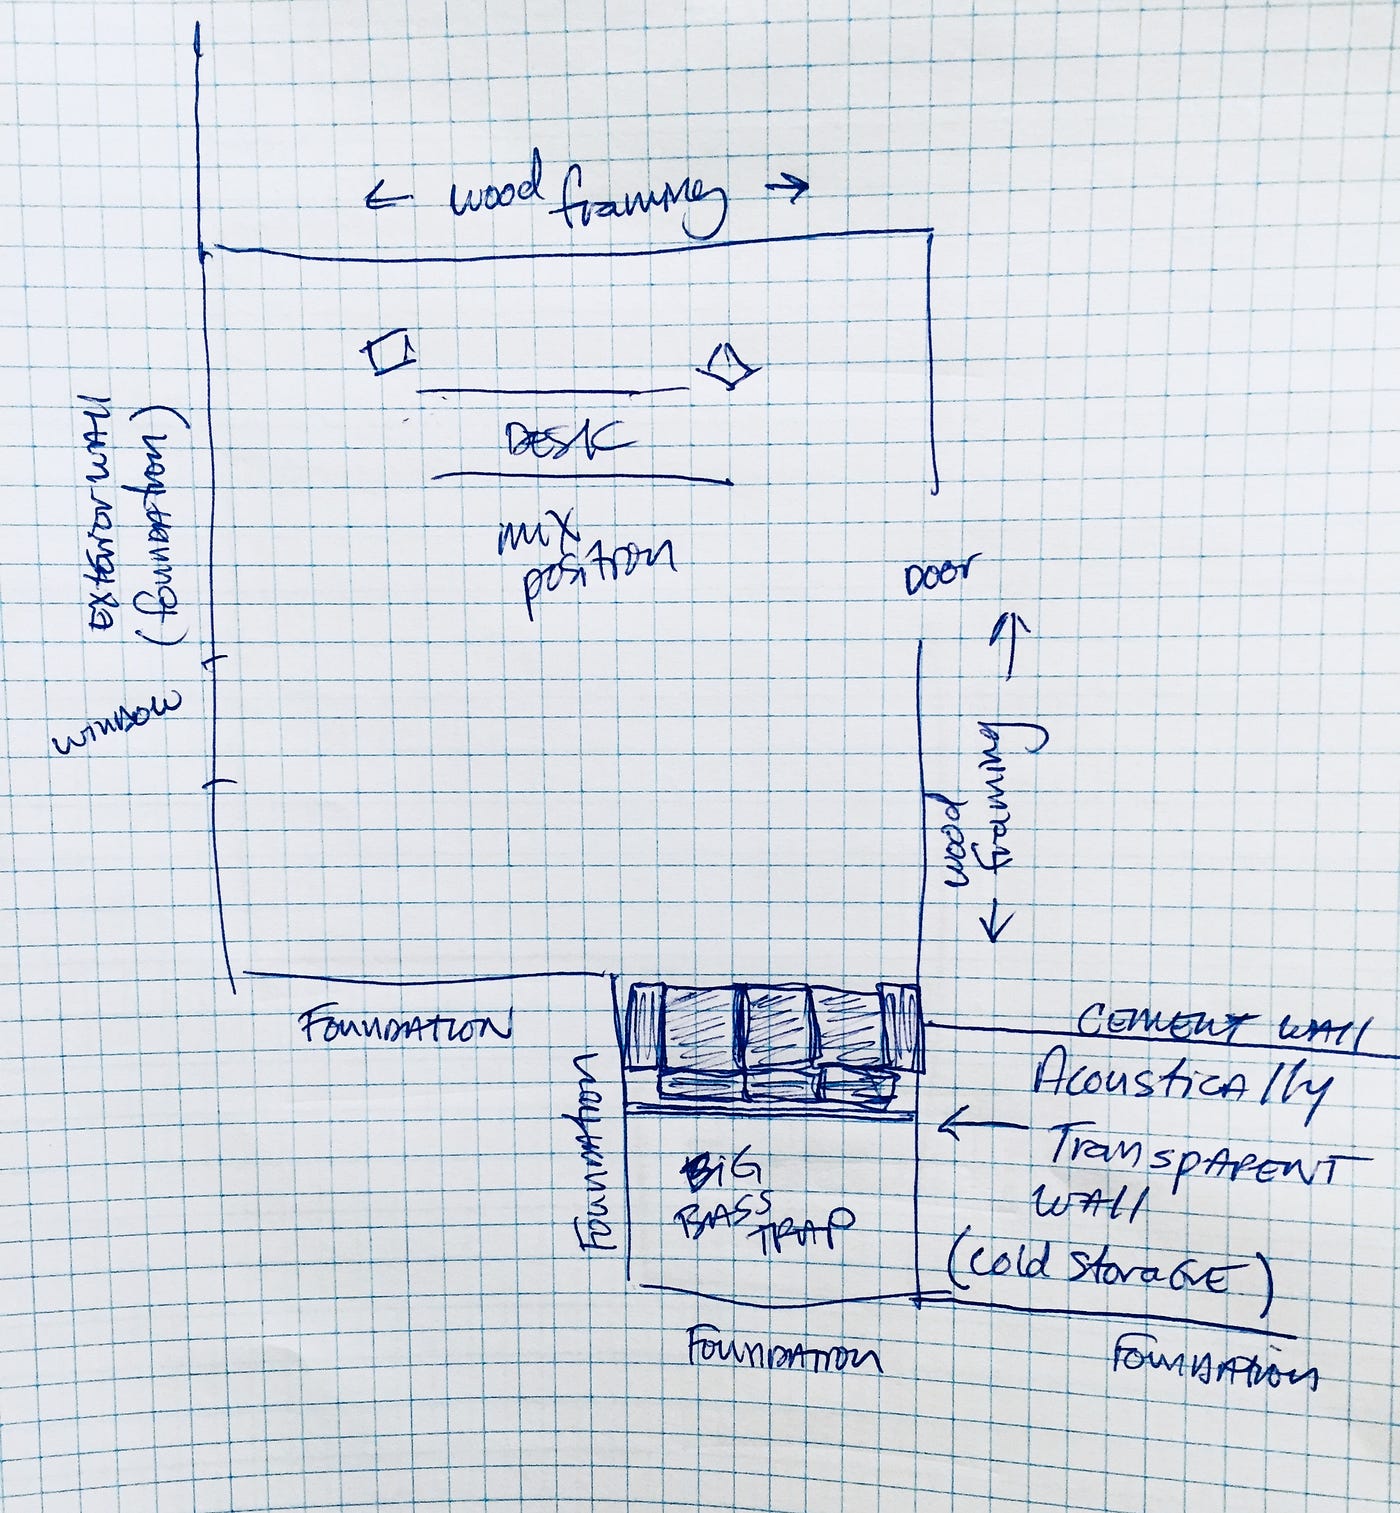 ← wood framing →
DESK
mix
position
EXTERIOR WALL
(foundation)
DOOR
WINDOW
wood
framing
FOUNDATION
CEMENT WALL
Acoustically
TransPARENT
WALL
(cold StoraGE)
Foundation
BiG
BASS
TRAP
FOUNDATION
FOUNDATION